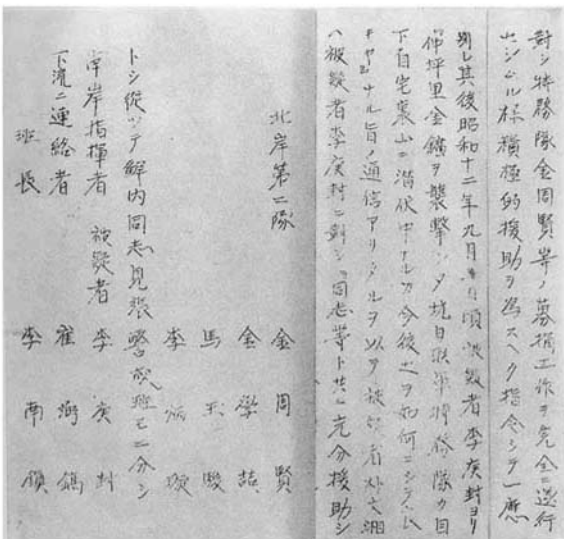 對シ特務隊金周賢等ノ募捐工作ヲ完全ニ遂行
セシムル樣積極的援助ヲ爲スヘク指令シテ一應
別レ其後昭和十二年九月 月頃被疑者李庚封ヨリ
坪里金鑛ヲ襲擊シタ抗日聯軍特務隊カ目
下自宅裏山ニ潛伏中ナルカ今後之ヲ如何ニシテ
ナル旨ノ通信アリタルヲ以テ被疑者朴文湖
ハ被疑者李庚封ニ對シ同志等ト共ニ充分援助シ
北岸第二隊
金周賢
金學
馬
李
トシ從ツテ鮮内同志見張警戒班モ二分シ
南岸指揮者 被疑者 李庚封
下流ニ連絡者 崔
班長 李南